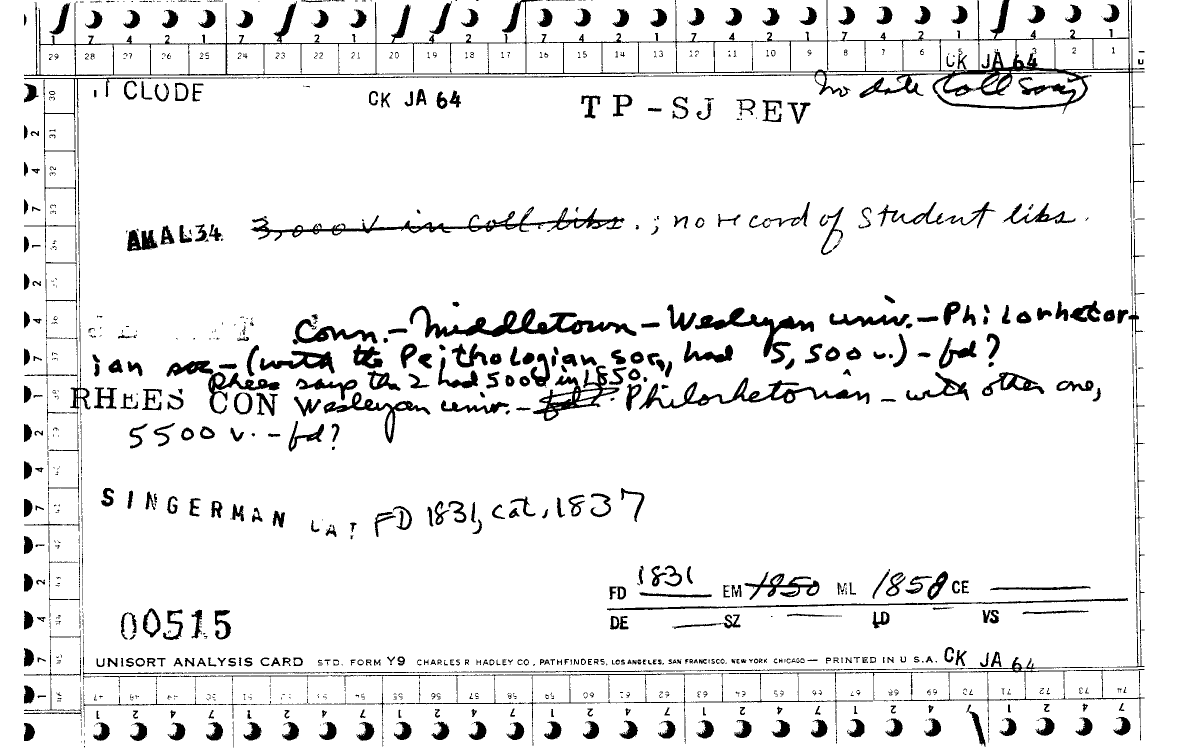 1 7 4 2 1 7 4 2 1 7 4 2 1 7 4 2 1 7 4 2 1 7 4 2 1 7 4 2 1
29 28 27 26 25 24 23 22 21 20 19 18 17 16 15 14 13 12 11 10 9 8 7 6 5 4 3 2 1
CK JA 64
CLODE CK JA 64 TP-SJ REV no date Coll Soc
AMAL34 3,000 v in coll. libs. ; no record of student libs.
Conn.-Middletown-Wesleyan univ.-Philorhetor-
ian soc-(with the Peithologian soc, had 5,500 v.)-fd?
Rhees says the 2 had 5000 in 1850.
RHEES CON Wesleyan univ.- Philorhetorian-with other one,
5500 v.-fd?
SINGERMAN CAT FD 1831, cat, 1837
FD 1831 EM 1850 ML 1858 CE
DE SZ LD VS
00515
UNISORT ANALYSIS CARD STD. FORM Y9 CHARLES R HADLEY CO., PATHFINDERS, LOS ANGELES, SAN FRANCISCO, NEW YORK CHICAGO — PRINTED IN U S.A. CK JA 64